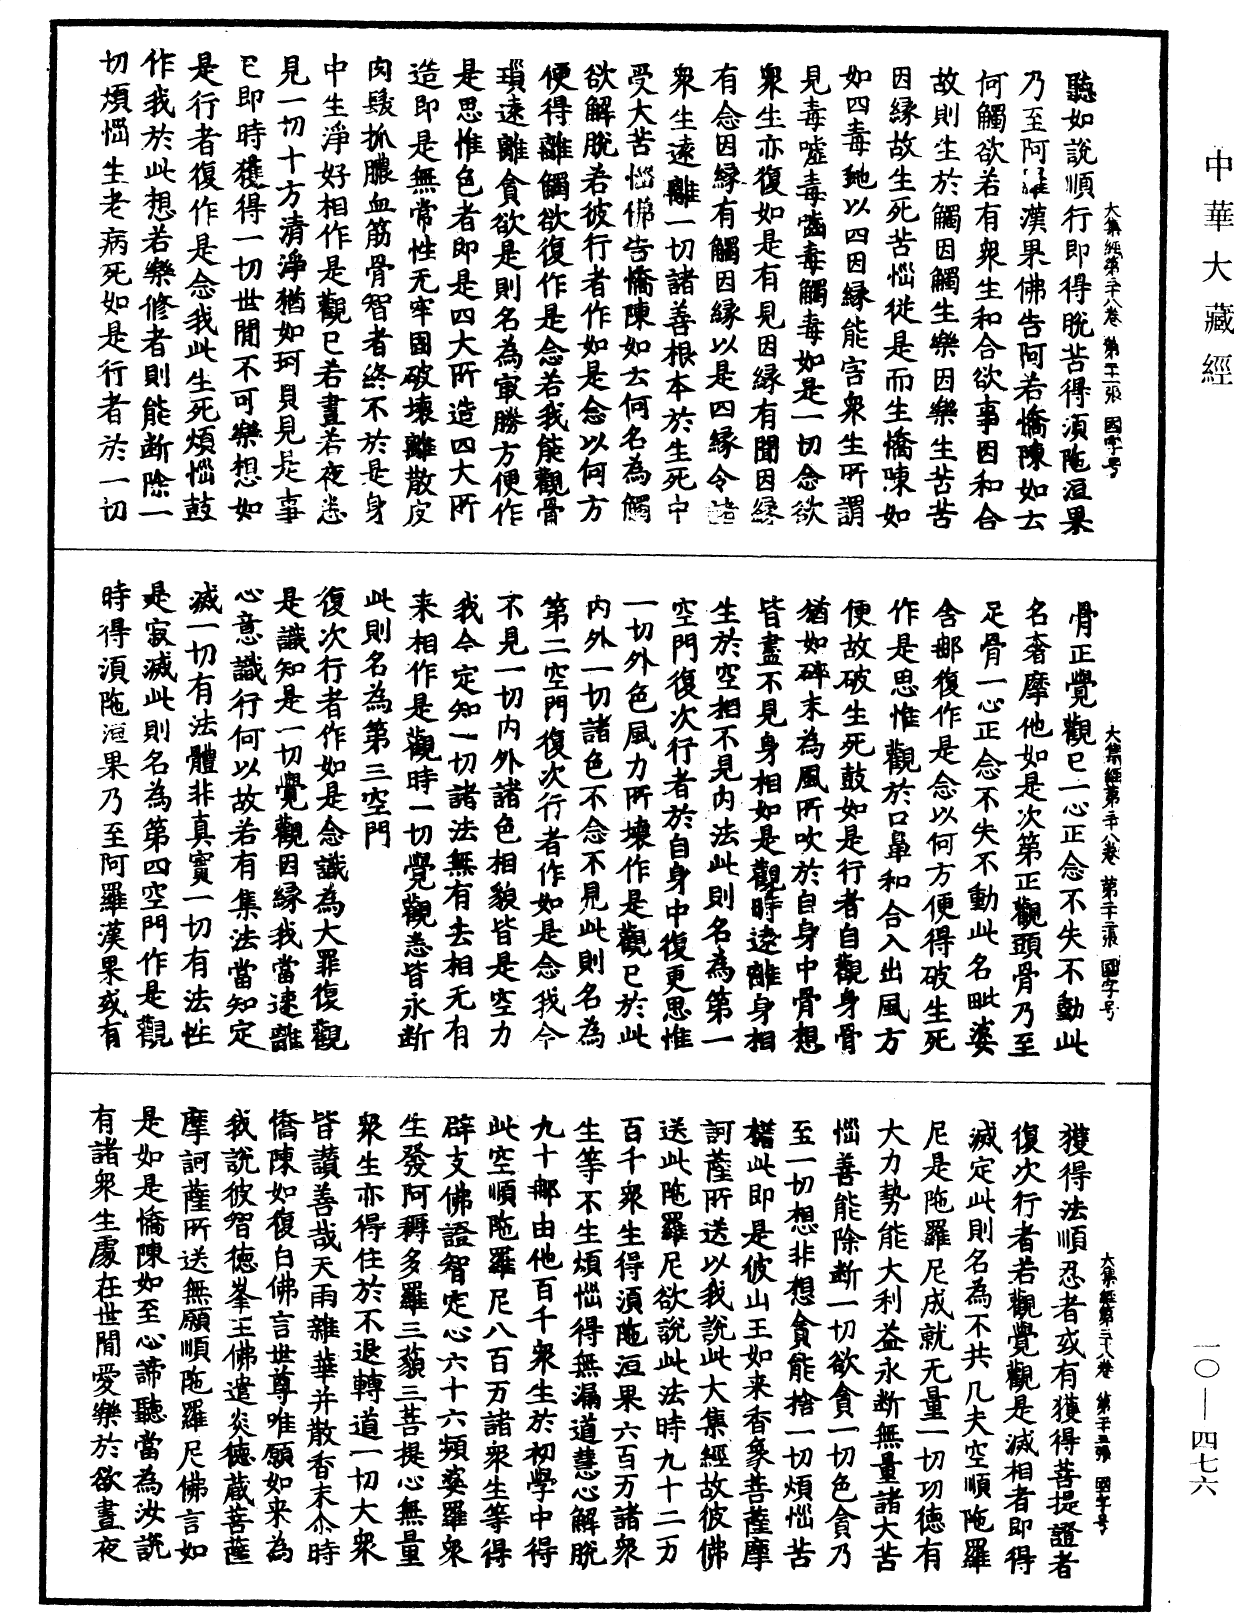 中華大藏經
大集經第三十八卷 第二十一張 國字号
聽如說順行即得脫苦得湏陁洹果
乃至阿羅漢果佛告阿若憍陳如云
何觸欲若有衆生和合欲事因和合
故則生於觸因觸生樂因樂生苦苦
因縁故生死苦惱從是而生憍陳如
如四毒虵以四因縁能害衆生所謂
見毒嘘毒齧毒觸毒如是一切念欲
衆生亦復如是有見因縁有聞因縁
有念因縁有觸因縁以是四縁令諸
衆生遠離一切諸善根本於生死中
受大苦惱佛告憍陳如云何名為觸
欲解脫若彼行者作如是念以何方
便得離觸欲復作是念若我能觀骨
瑣遠離貪欲是則名為冣勝方便作
是思惟色者即是四大所造四大所
造即是無常性无牢固破壞離散皮
肉髮抓膿血筋骨智者終不於是身
中生淨好相作是觀已若晝若夜悉
見一切十方清淨猶如珂貝見是事
已即時獲得一切世間不可樂想如
是行者復作是念我此生死煩惱鼓
作我於此想若樂修者則能断除一
切煩惱生老病死如是行者於一切
大集經第三十八卷 第二十二張 國字号
骨正覺觀已一心正念不失不動此
名奢摩他如是次第正觀頭骨乃至
足骨一心正念不失不動此名毗婆
舍那復作是念以何方便得破生死
作是思惟觀於口鼻和合入出風方
便故破生死鼓如是行者自觀身骨
猶如碎末為風所吹於自身中骨想
皆盡不見身相如是觀時遠離身相
生於空相不見内法此則名為第一
空門復次行者於自身中復更思惟
一切外色風力所壞作是觀已於此
内外一切諸色不念不見此則名為
第二空門復次行者作如是念我今
不見一切内外諸色相貌皆是空力
我今定知一切諸法無有去相无有
来相作是觀時一切覺觀悉皆永断
此則名為第三空門
復次行者作如是念識為大罪復觀
是識知是一切覺觀因縁我當速離
心意識行何以故若有集法當知定
滅一切有法體非真實一切有法性
是寂滅此則名為第四空門作是觀
時得湏陁洹果乃至阿羅漢果或有
大集經第三十八卷 第二十三張 國字号
獲得法順忍者或有獲得菩提證者
復次行者若觀覺觀是滅相者即得
滅定此則名為不共凡夫空順陁羅
尼是陁羅尼成就无量一切功徳有
大力勢能大利益永断無量諸大苦
惱善能除断一切欲貪一切色貪乃
至一切想非想貪能捨一切煩惱苦
檐此即是彼山王如来香象菩薩摩
訶薩所送以我說此大集經故彼佛
送此陁羅尼欲說此法時九十二万
百千衆生得湏陁洹果六百万諸衆
生等不生煩惱得無漏道慧心解脫
九十那由他百千衆生於初學中得
此空順陁羅尼八百万諸衆生等得
辟支佛證智定心六十六頻婆羅衆
生發阿耨多羅三藐三菩提心無量
衆生亦得住於不退轉道一切大衆
皆讃善哉天雨雜華并散香末尒時
憍陳如復白佛言世尊唯願如来為
我說彼智德峯王佛遣炎德蔵菩薩
摩訶薩所送無願順陁羅尼佛言如
是如是憍陳如至心諦聽當為汝說
有諸衆生處在世間愛樂於欲晝夜
一〇—四七六